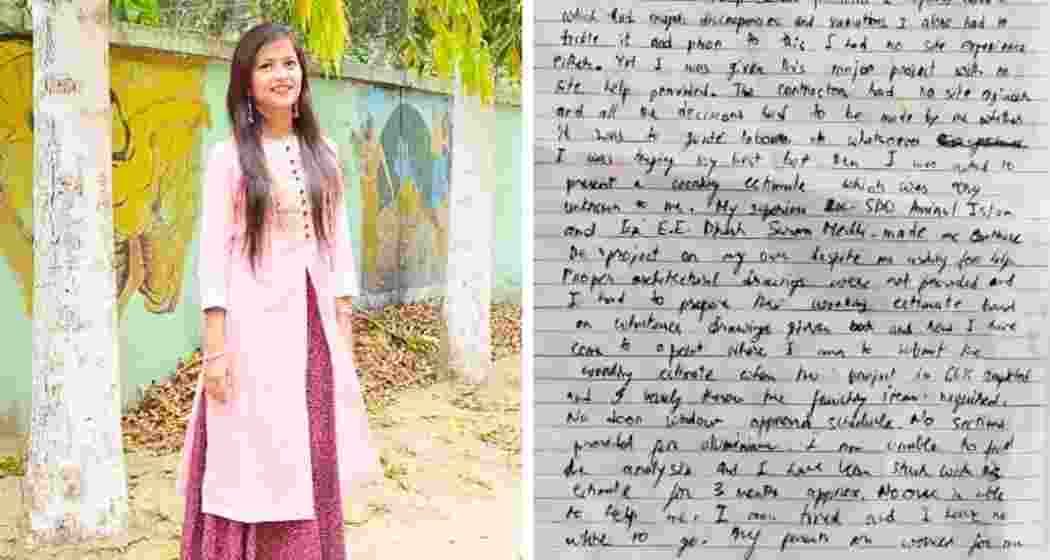 which had major discrepancies and variations I also had to
tackle it and prior to this I had no site experience
either. Yet I was given this major project with no
site help provided. The contractor had no site engineer
and all the decisions had to be made by me whether
it was to guide labours or whatsoever
I was trying my best but then I was asked to
present a working estimate which was very
unknown to me. My superior SDO Aminul Islam
and E.E. made me continue
the project on my own despite me asking for help
Proper architectural drawings were not provided and
I had to prepare the working estimate based
on drawings given and now I have
come to a point where I am to submit the
working estimate when the project is completed
and I barely know the items required.
No door window approved schedule. No sections
provided for aluminium. I am unable to find
the analysis and I have been stuck with this
estimate for 3 months approx. No one is able
to help me. I am tired and I have no
where to go. My parents are worried for me